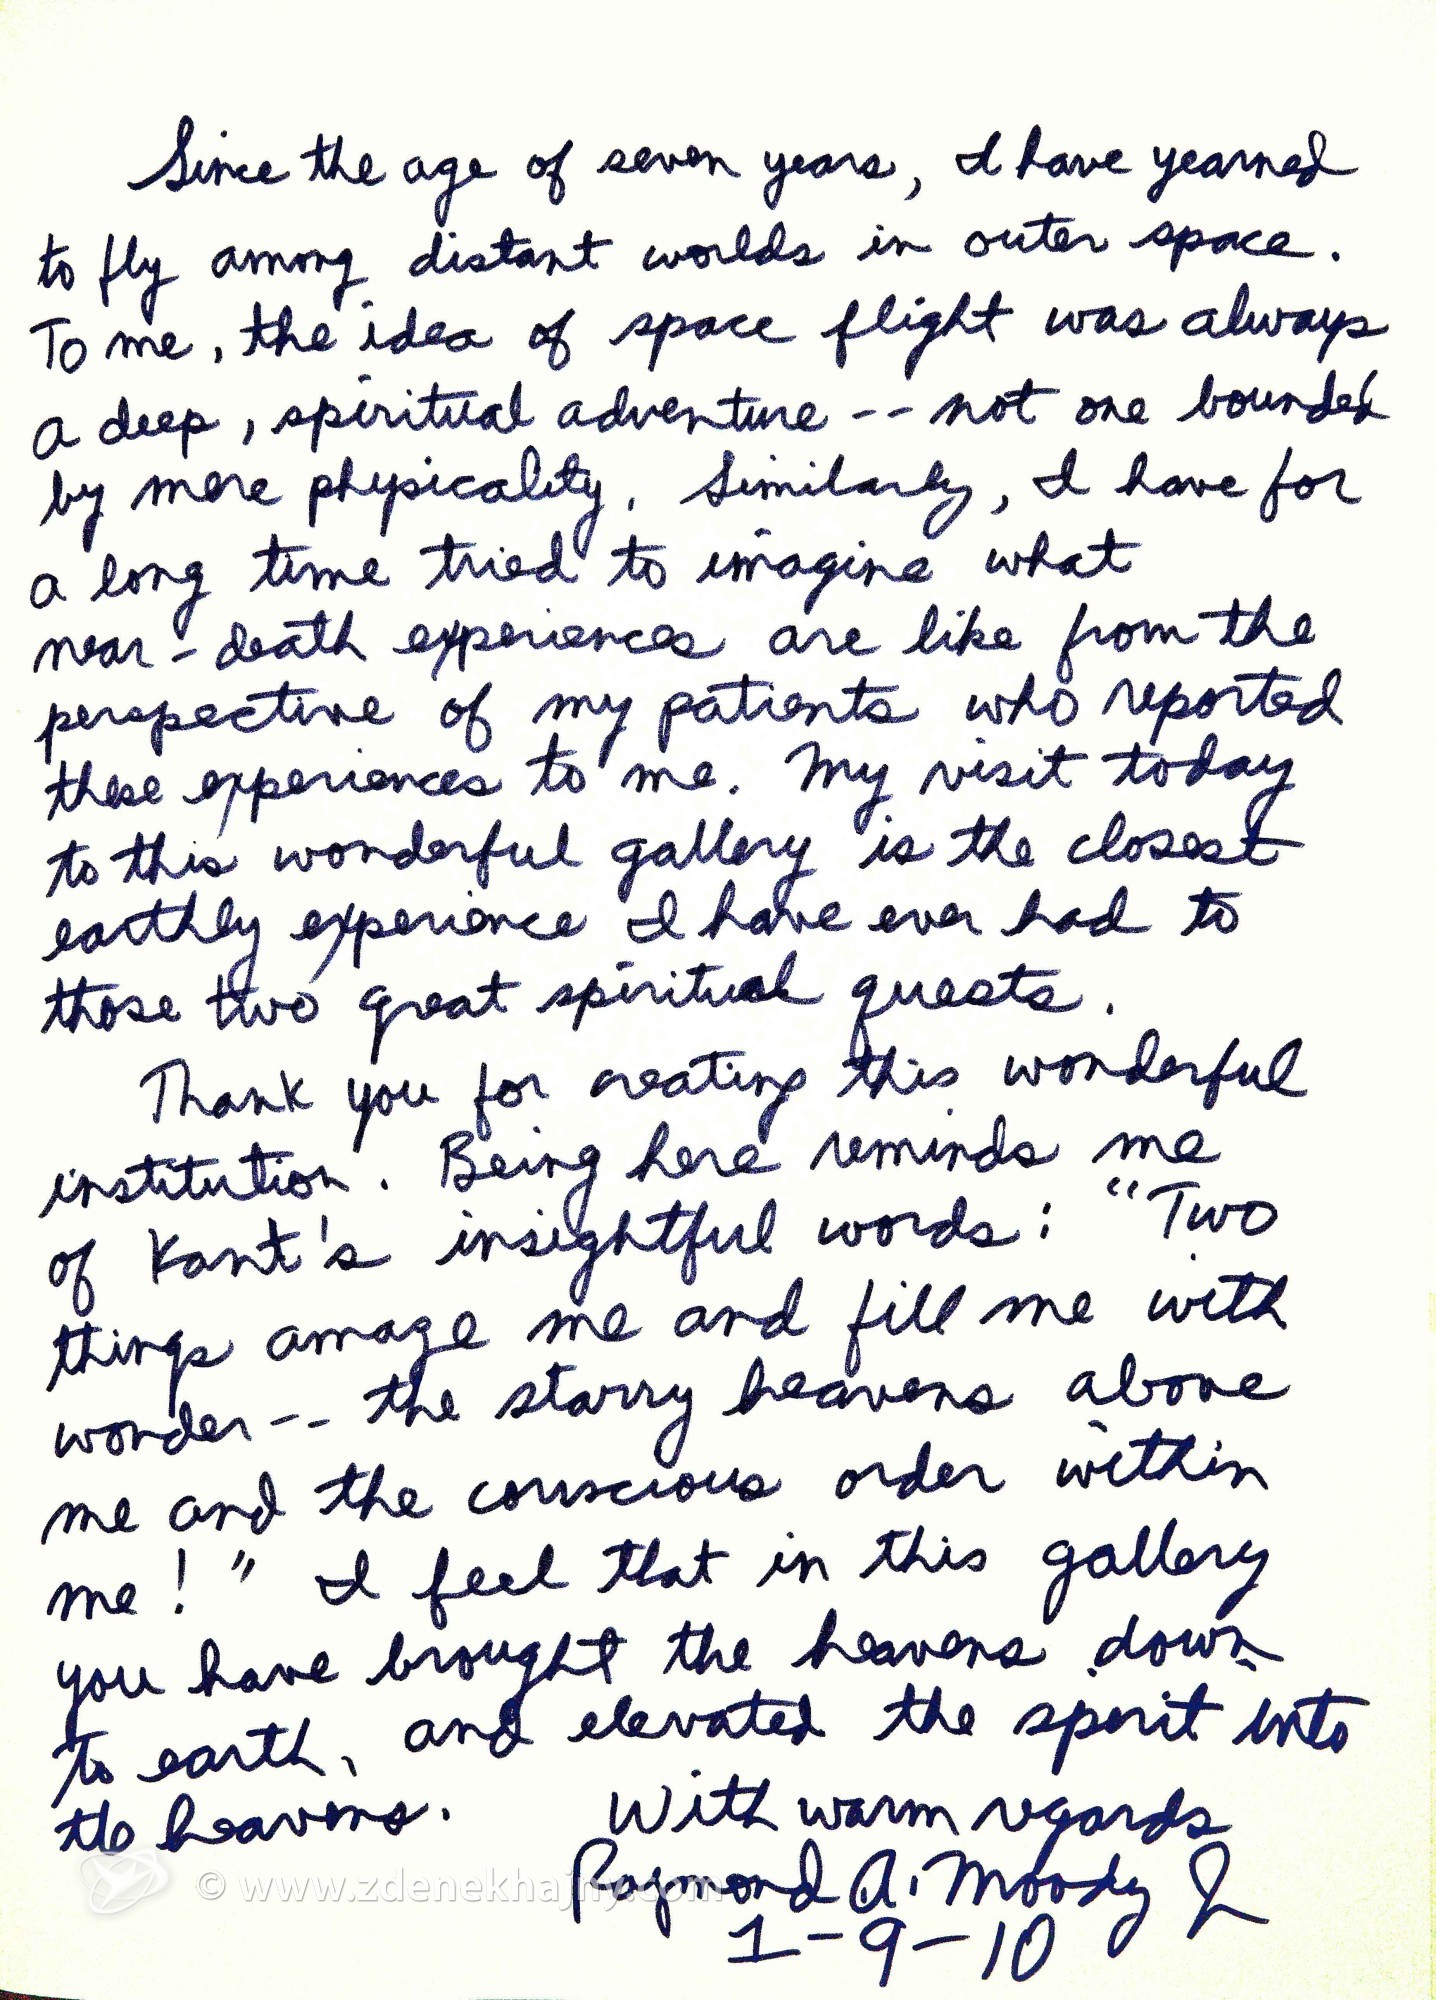 Since the age of seven years, I have yearned
to fly among distant worlds in outer space.
To me, the idea of space flight was always
a deep, spiritual adventure -- not one bounded
by mere physicality. Similarly, I have for
a long time tried to imagine what
near-death experiences are like from the
perspective of my patients who reported
these experiences to me. My visit today
to this wonderful gallery is the closest
earthly experience I have ever had to
those two great spiritual quests.
Thank you for creating this wonderful
institution. Being here reminds me
of Kant's insightful words: "Two
things amaze me and fill me with
wonder -- the starry heavens above
me and the conscious order within
me!" I feel that in this gallery
you have brought the heavens down
to earth, and elevated the spirit into
the heavens. With warm regards
Raymond A. Moody Jr
1-9-10
© www.zdenekhajny.com